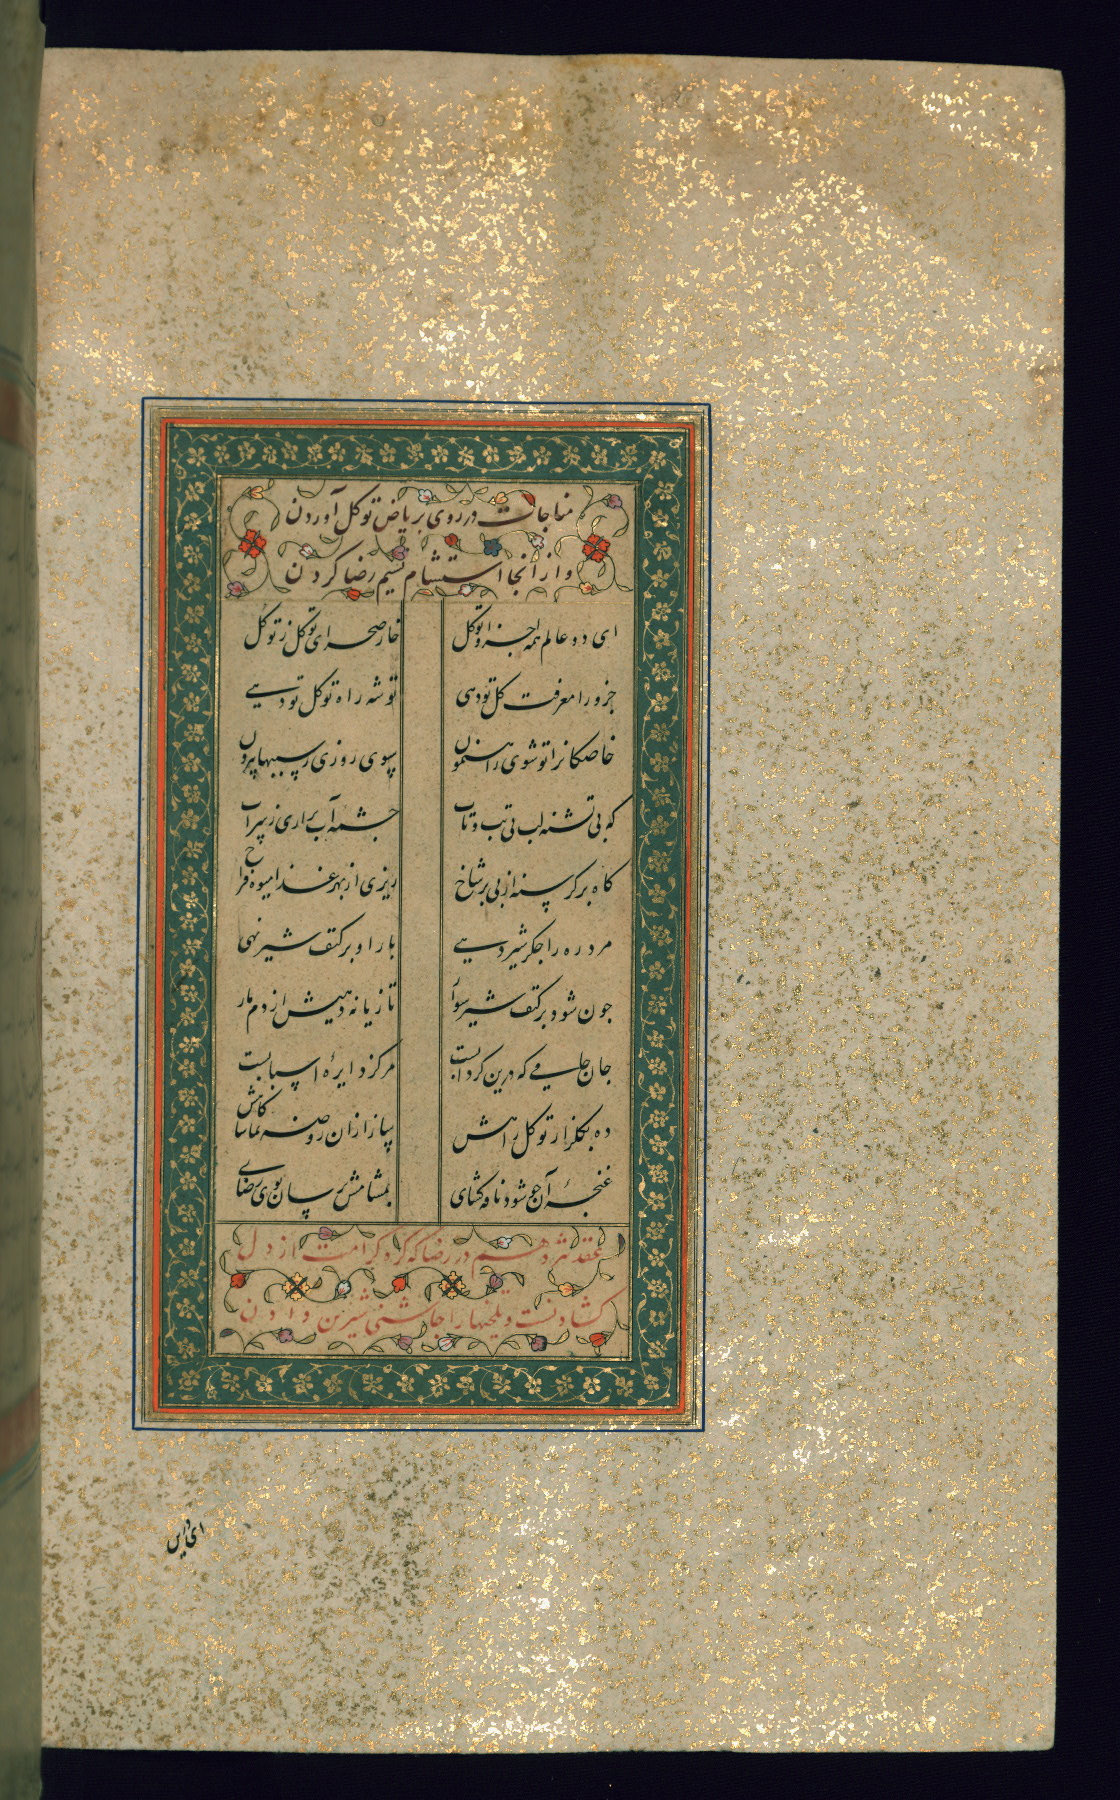 مناجات در روی بریاض توکل آوردن
و از آنجا استشمام نسیم رضا کردن
ای دو عالم همه جزو و تو کل
خار صحرای توکل ز تو گل
جزو را معرفت کل تو دهی
توشه راه توکل تو دهی
خاصکانرا تو شوی راهنمون
بسوی روزی ز سببها بیرون
که پی تشنه لب بی تب و تاب
چشمه آب براری ز سراب
کاه بر کرسنه از بی بر شاخ
ریزی از بهر غذا میوه فراخ
مرد ره را جکر شیر دهی
بار او بر کتف شیر نهی
جون شود بر کتف شیر سوار
تازیانه دهیش از دم مار
جان جامی که درین کرد
مرکز دایره اسبابست
ده بکلزار توکل راهش
ساز ازان روضه تماشاکاهش
غنجۀ آن جو شود نافه کشای
بمشامش برسان بوی رضای
عقد نزدهم در رضا که کره کرامت از دل
کشادنست و تلخیها را جاشنی شیرین دادن
ای در این